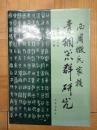 西周微氏家族
青銅器群研究